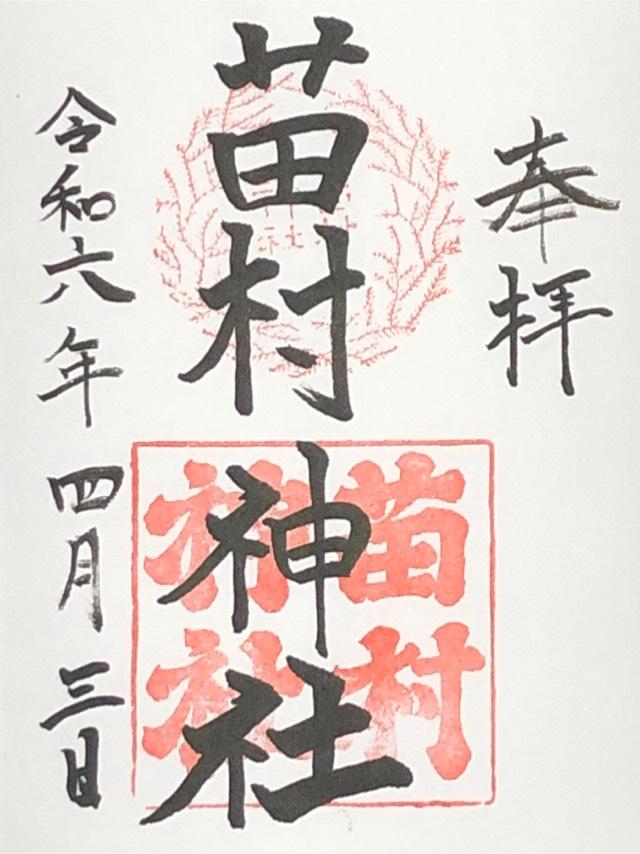 奉拝
苗村神社
苗村
神社
令和六年四月三日